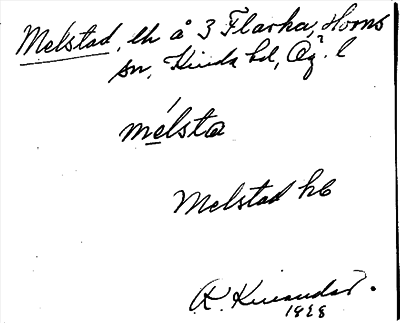 Melstad, lh å 3 Flarka, Horns
sn, Kinda hd, Ög. l
mélsta
Melstad hb
R. Kinander.
1928